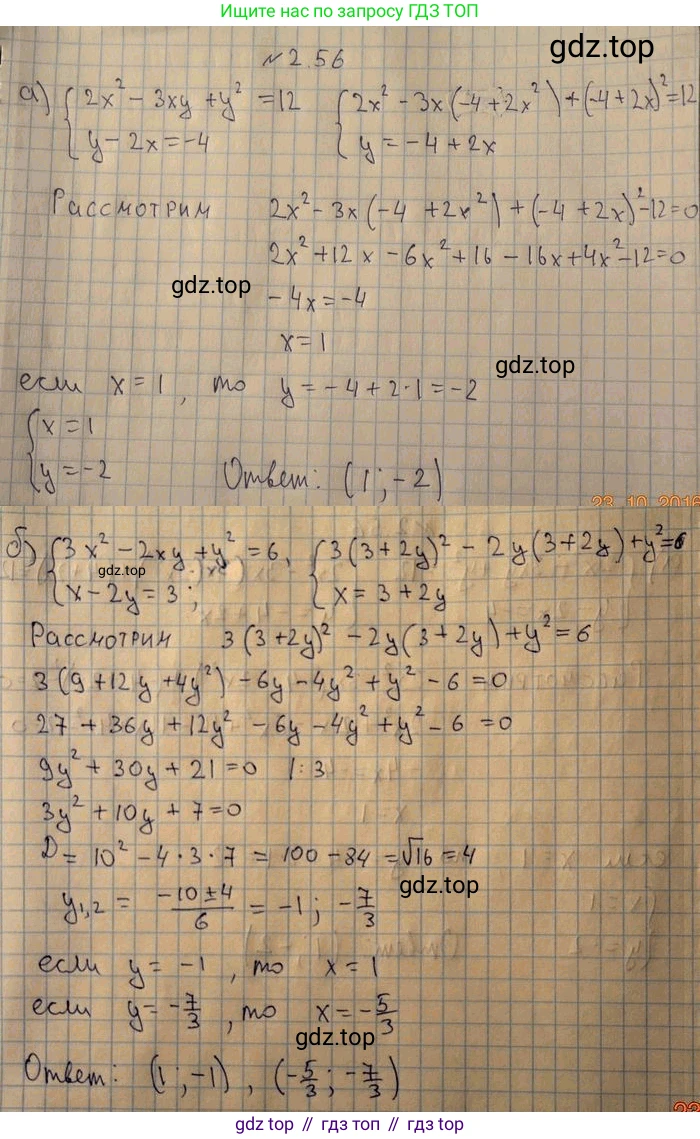 Больше гдз по запросу ГДЗ ТОП
gdz.top
№ 2.56
а) { 2x² - 3xy + y² = 12 { 2x² - 3x(-4 + 2x²) + (-4 + 2x)² = 12
y - 2x = -4 y = -4 + 2x
Рассмотрим 2x² - 3x(-4 + 2x²) + (-4 + 2x)² - 12 = 0
2x² + 12x - 6x² + 16 - 16x + 4x² - 12 = 0
gdz.top
-4x = -4
x = 1
gdz.top
если x = 1, то y = -4 + 2·1 = -2
{ x = 1
y = -2 Ответ: (1; -2)
23 10 2016
б) { 3x² - 2xy + y² = 6, { 3(3 + 2y)² - 2y(3 + 2y) + y² = 6
gdz.top
x - 2y = 3; x = 3 + 2y
Рассмотрим 3(3 + 2y)² - 2y(3 + 2y) + y² = 6
3(9 + 12y + 4y²) - 6y - 4y² + y² - 6 = 0
27 + 36y + 12y² - 6y - 4y² + y² - 6 = 0
9y² + 30y + 21 = 0 |: 3
3y² + 10y + 7 = 0
D = 10² - 4·3·7 = 100 - 84 = √16 = 4
gdz.top
y₁,₂ = (-10 ± 4)/6 = -1; -7/3
если y = -1, то x = 1
если y = -7/3, то x = -5/3
gdz.top
Ответ: (1; -1), (-5/3; -7/3)
23
gdz.top // gdz.top // gdz.top